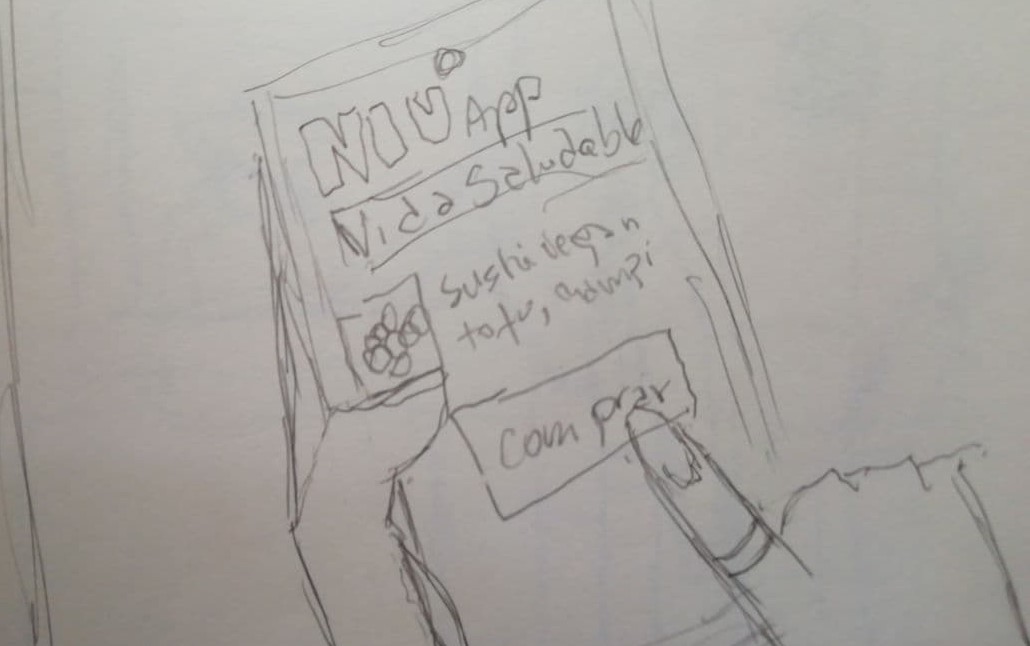 NIU App
Vida Saludable
Sushi vegan
tofu,
Comprar